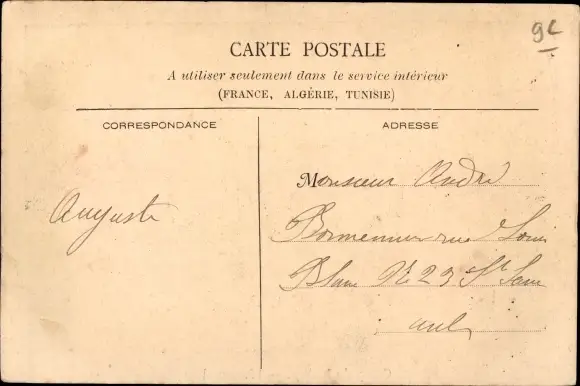 9c
CARTE POSTALE
A utiliser seulement dans le service intérieur
(FRANCE, ALGÉRIE, TUNISIE)
CORRESPONDANCE
ADRESSE
Auguste
Monsieur André
rue Louis
Blanc N 23 St